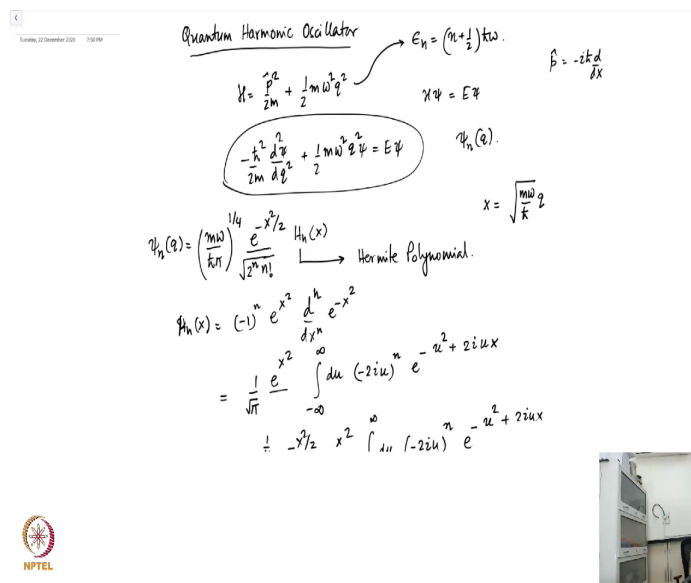 <
Tuesday, 22 December 2020 7:50 PM
Quantum Harmonic Oscillator
ϵₙ = (n+½) ħω.
H = p̂²/2m + ½ mω²q²
p̂ = -iħ d/dx
Hψ = Eψ
-ħ²/2m d²ψ/dq² + ½ mω²q²ψ = Eψ
ψₙ(q).
x = √(mω/ħ) q
ψₙ(q) = (mω/ħπ)^1/4 e^-x²/2 / √(2ⁿ n!) Hₙ(x)
→ Hermite Polynomial.
Hₙ(x) = (-1)ⁿ e^x² dⁿ/dxⁿ e^-x²
= 1/√π e^x² ∫_-∞^∞ du (-2iu)ⁿ e^-u²+2iux
1 -x²/2 x² ∫^∞ du (-2iu)ⁿ e^-u²+2iux
NPTEL